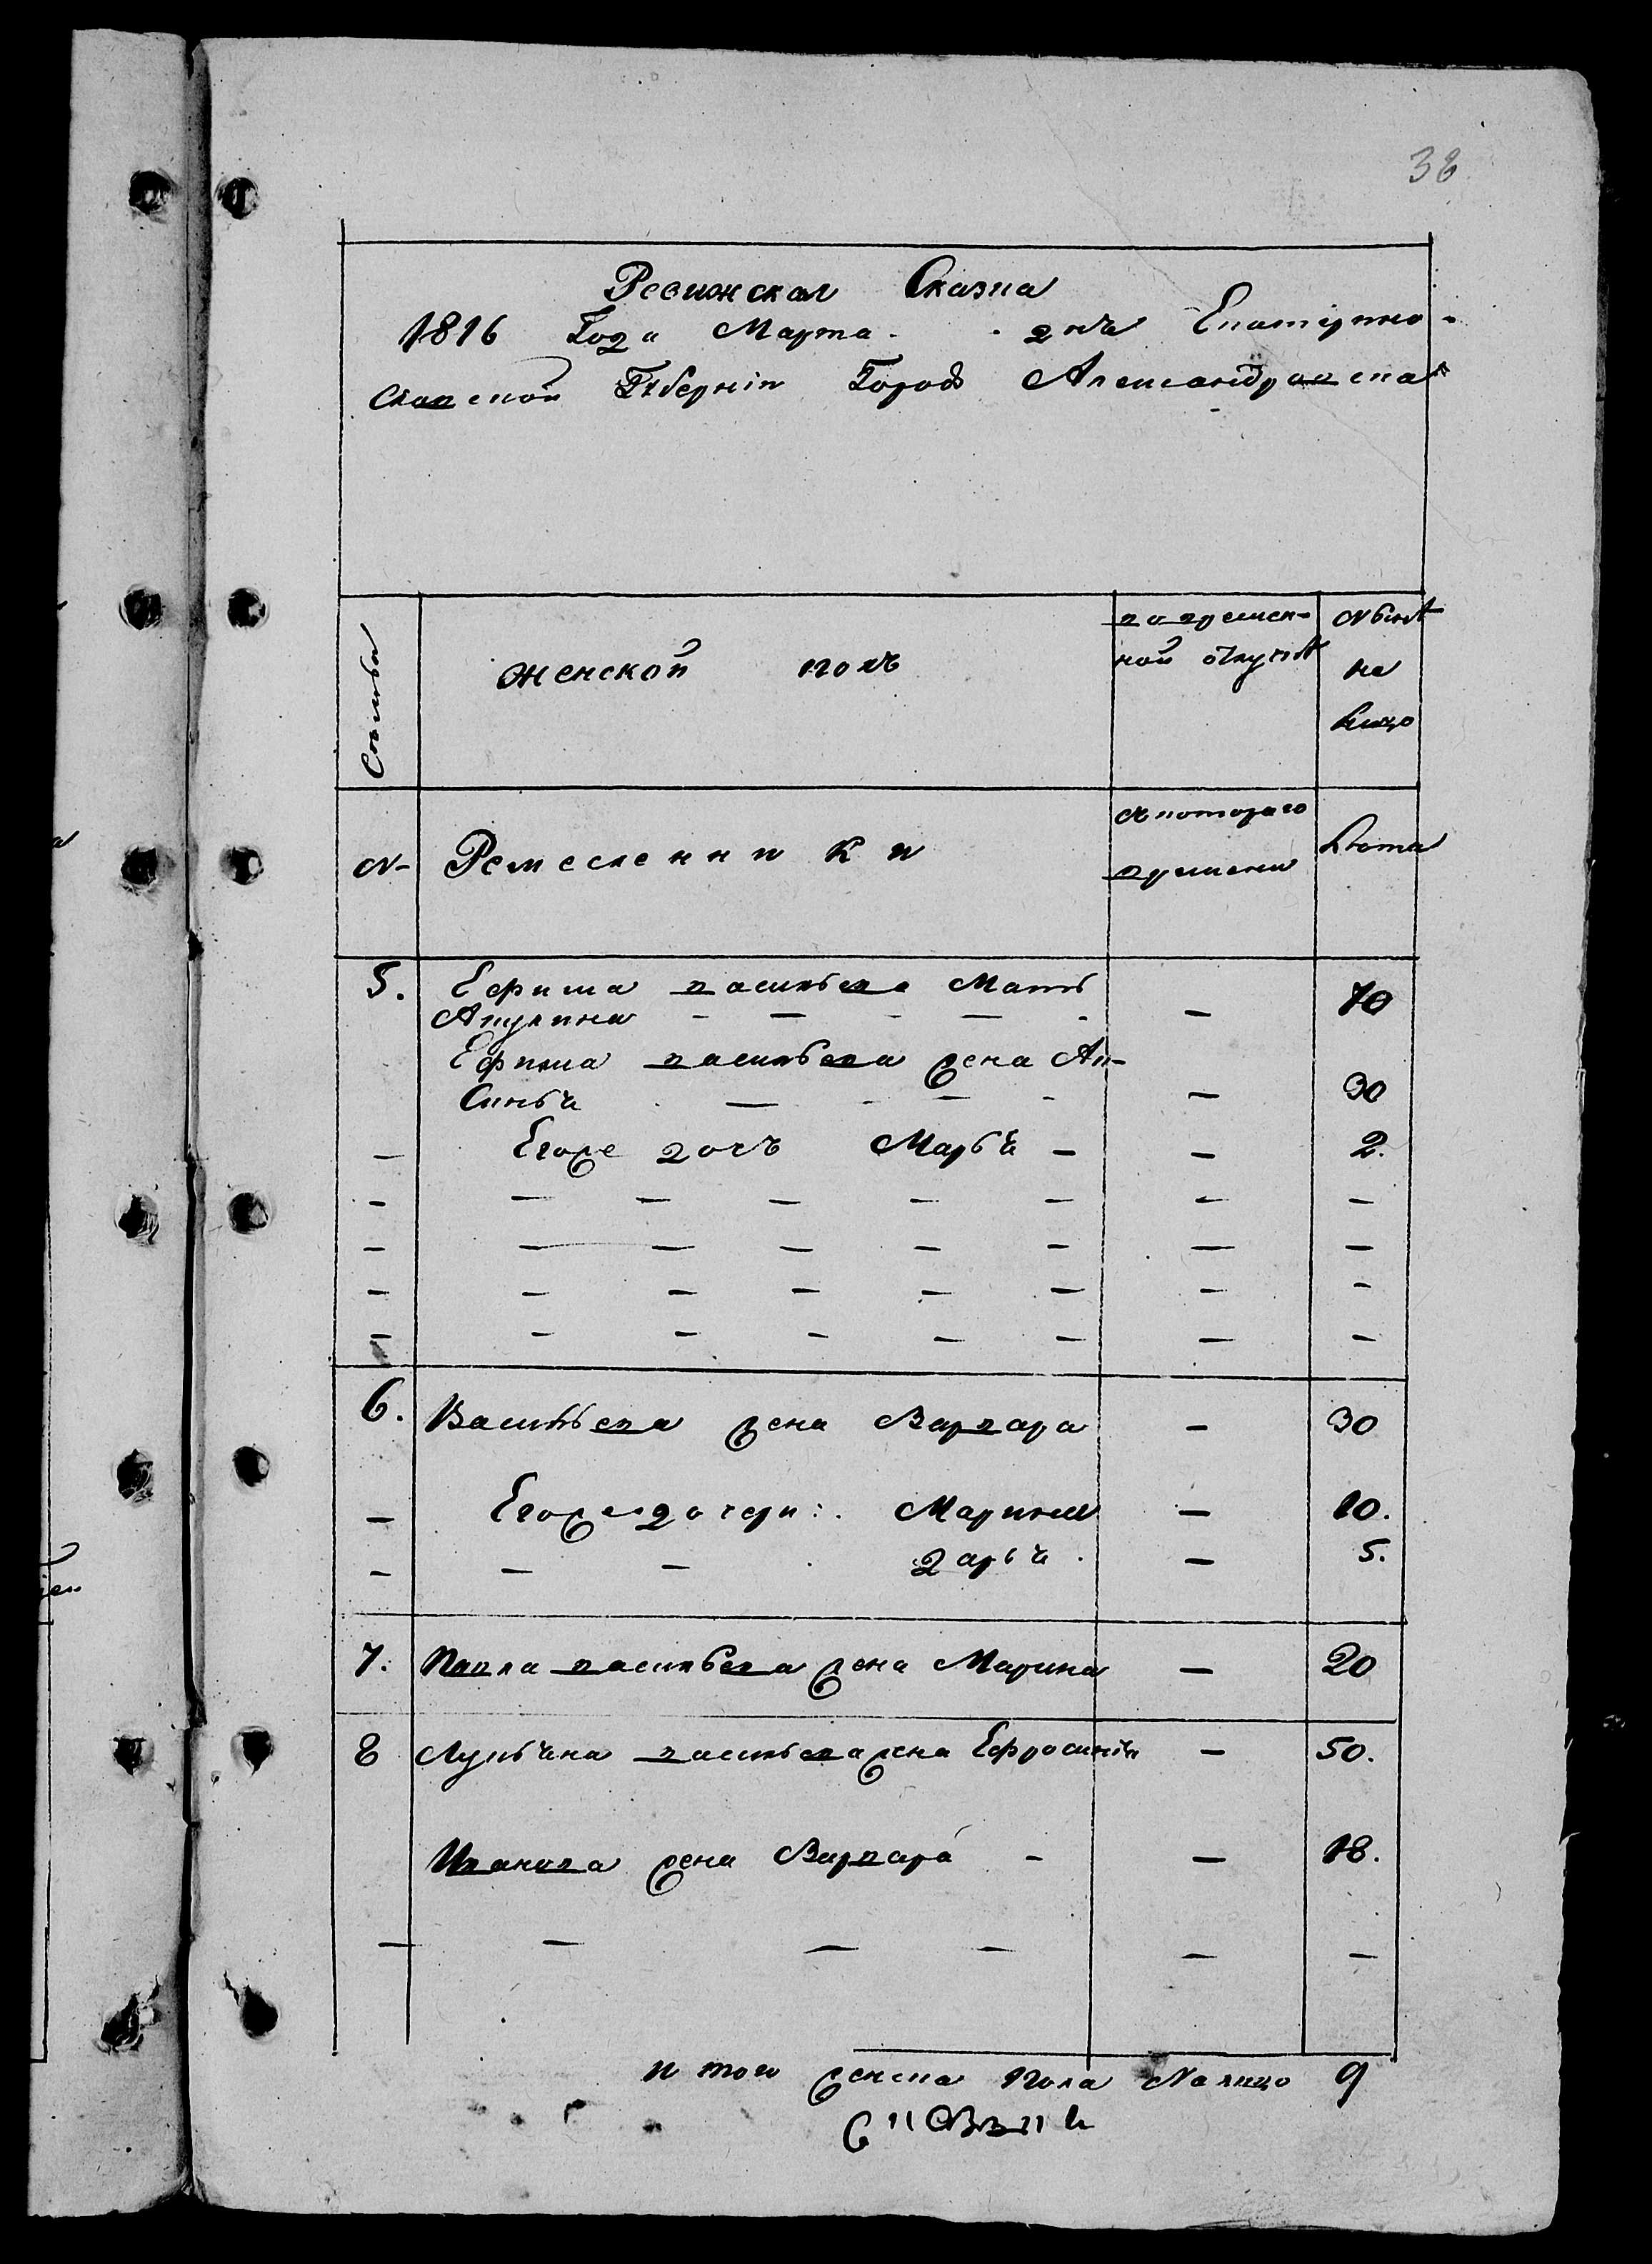 38
Ревижская Сказка
1816 Года Марта - . дня Екатерино-
славской Губерніи Города Александровска
Семьи
женской полъ
во времен-
ной отлучкѣ
Нынѣ
на
лицо
№
Ремесленники
съ котораго
времени
Лѣта
5. Ефима васильева Мать
Акулина - — - — - — 70
Ефима васильева жена Ак-
синья - — - — - — 30
— Егоже дочь Марья — — 2.
— — — — — — — —
— — — — — — — —
— — — — — — — —
— — — — — — — —
6. Васильева жена Варвара — 30
— Егоже дочери: Марина — 10.
— — — Дарья . — 5.
7. Павла васильева жена Марина — 20
8 Лукьяна васильева жена Ефросинія — 50.
Иванова жена Варвара - — 18.
— — — — — —
итого женска пола На лицо 9